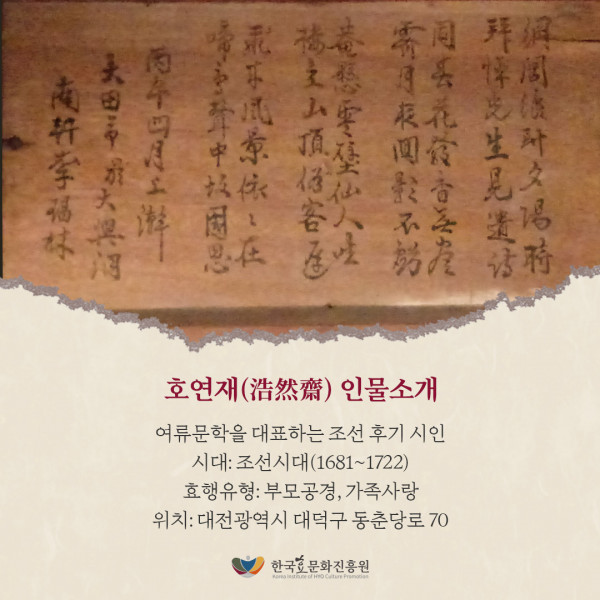 夕陽時
拜悼先生見遺詩
同春花發香無盡
霽月夜回影不
菴懸雲壁仙人坐
山頂客遲
風景依々在
啼鳥聲中故國思
丙午四月上澣
大田市大興洞
南軒李福林
호연재(浩然齋) 인물소개
여류문학을 대표하는 조선 후기 시인
시대: 조선시대(1681~1722)
효행유형: 부모공경, 가족사랑
위치: 대전광역시 대덕구 동춘당로 70
한국효문화진흥원
Korea Institute of HYO Culture Promotion